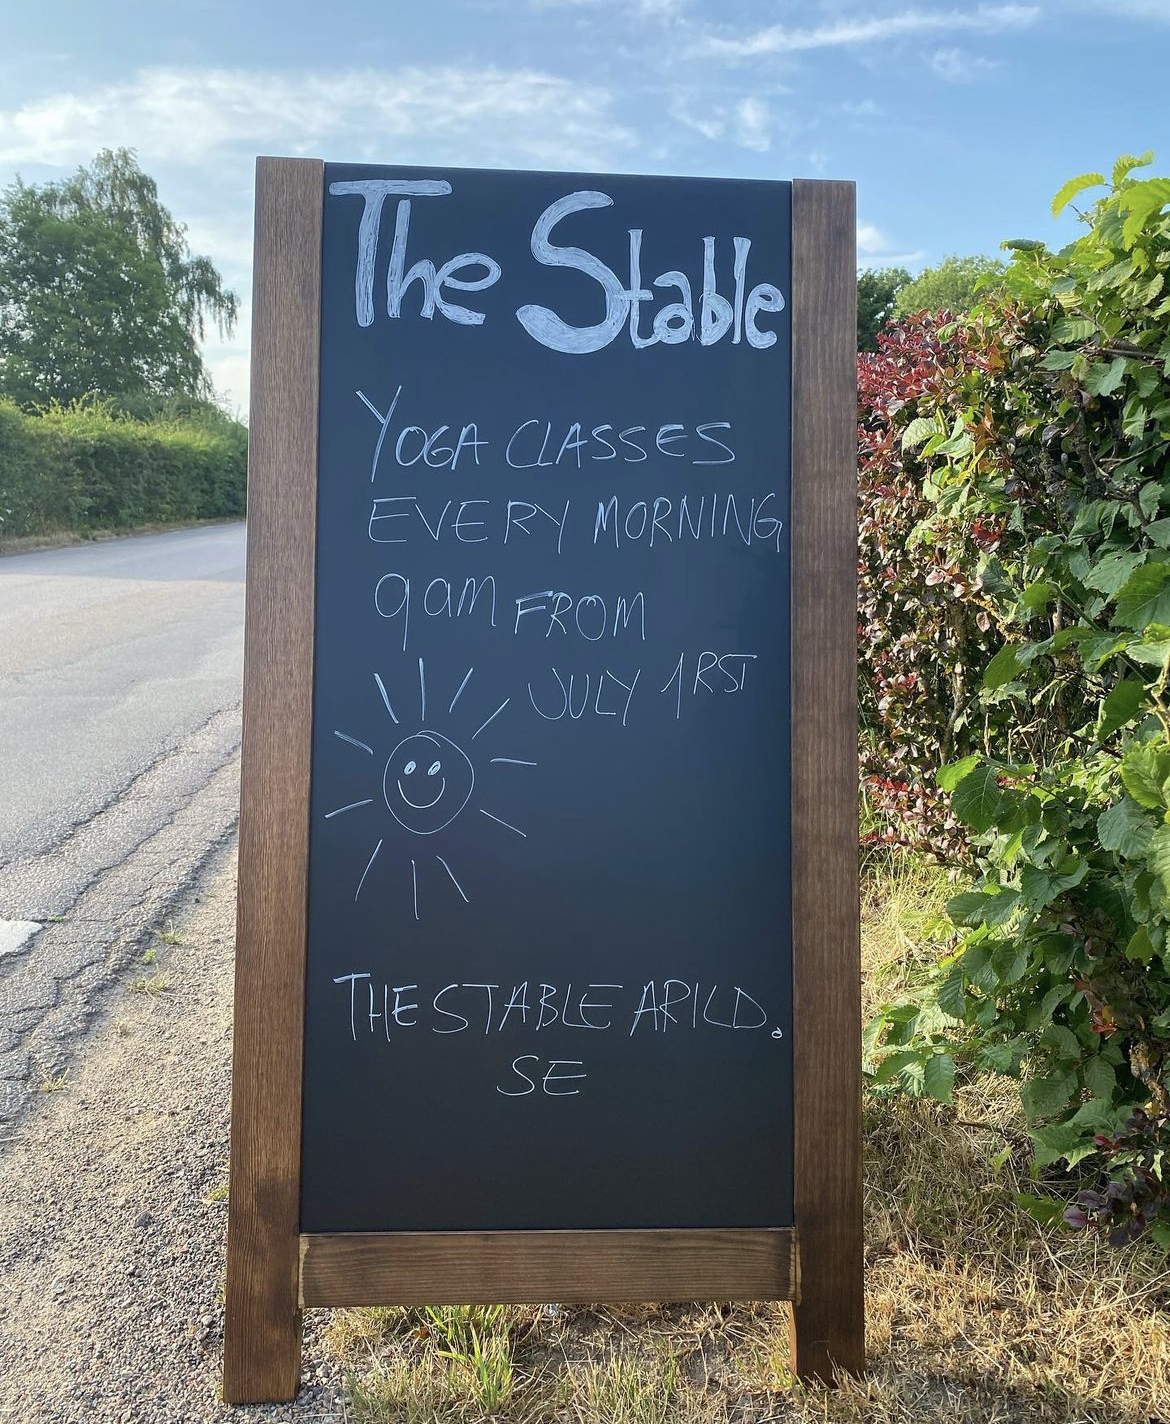 The Stable
YOGA CLASSES
EVERY MORNING
9am FROM
JULY 1RST
THE STABLE ARILD.
SE